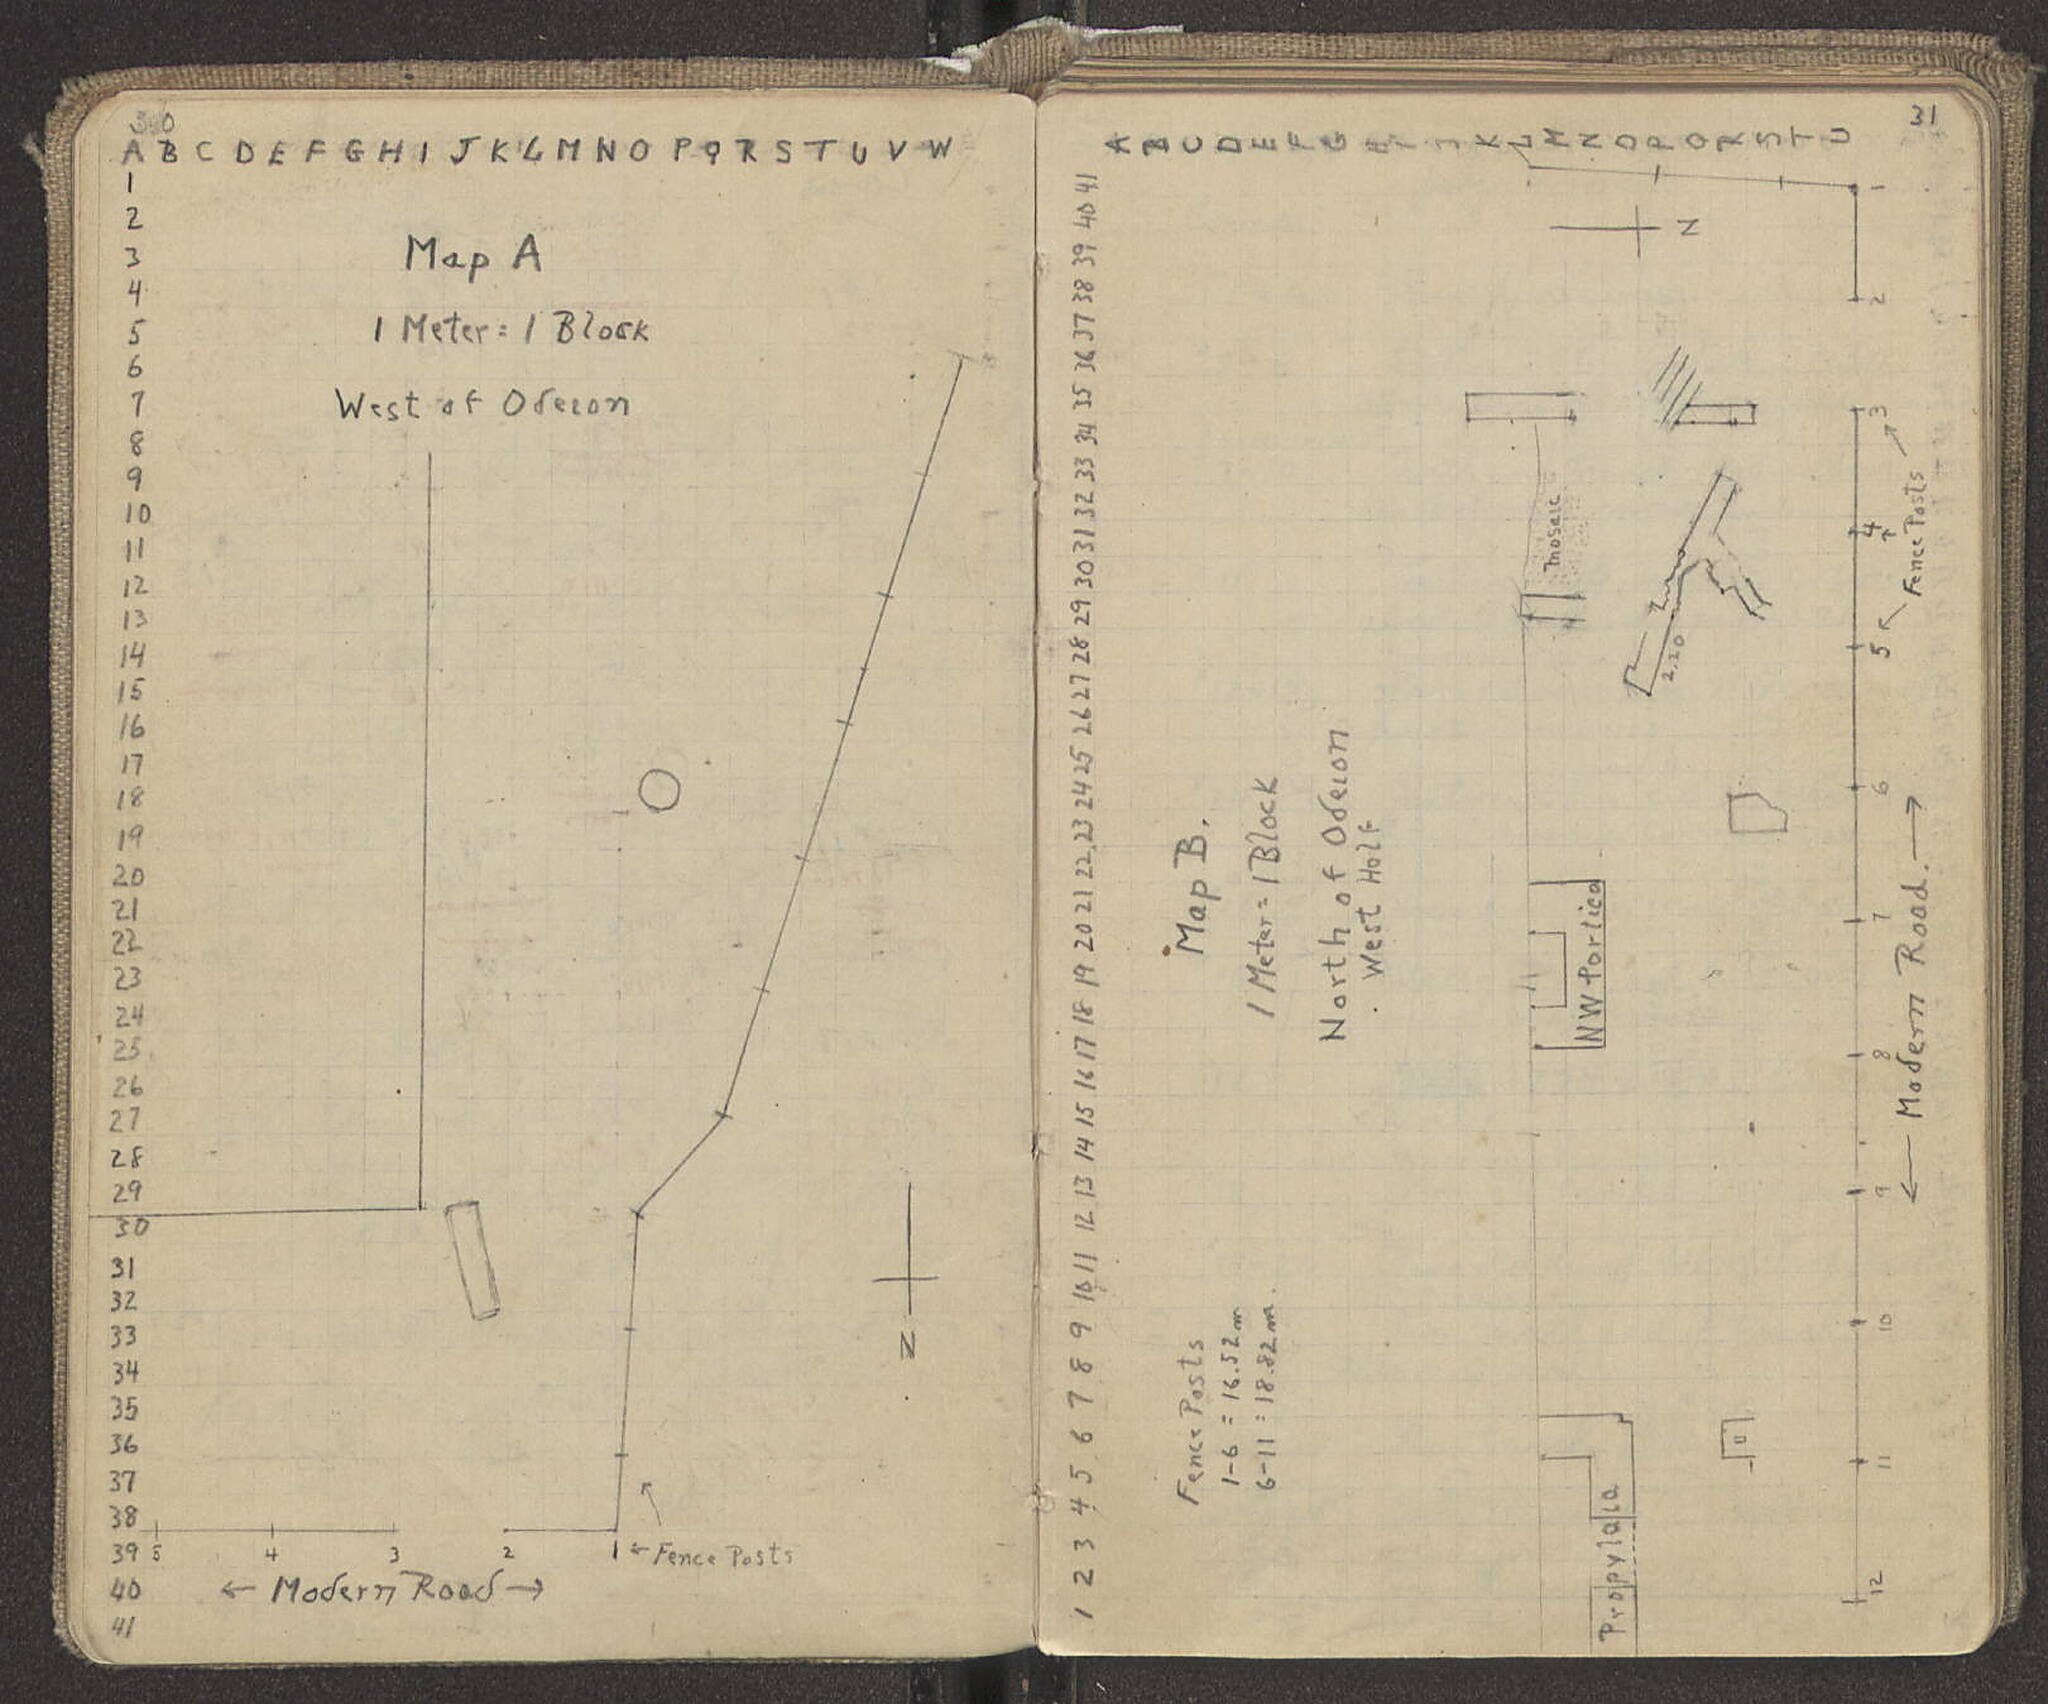 30
A B C D E F G H I J K L M N O P Q R S T U V W
1
2
3
4
5
6
7
8
9
10
11
12
13
14
15
16
17
18
19
20
21
22
23
24
25
26
27
28
29
30
31
32
33
34
35
36
37
38
39
40
41
Map A
1 Meter = 1 Block
West of Odeion
N
5 4 3 2 1 ← Fence Posts
← Modern Road →
31
A B C D E F G H I J K L M N O P Q R S T U
1 2 3 4 5 6 7 8 9 10 11 12 13 14 15 16 17 18 19 20 21 22 23 24 25 26 27 28 29 30 31 32 33 34 35 36 37 38 39 40 41
Map B.
1 Meter = 1 Block
North of Odeion
West Half
Fence Posts
1-6 = 16.52 m
6-11 = 18.82 m.
N
mosaic
2.20
NW Portico
Propylaia
1 2 3 4 5 6 7 8 9 10 11 12
Fence Posts
← Modern Road. →